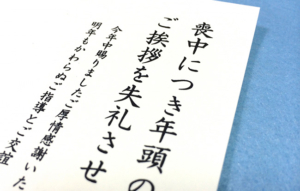 喪中につき年頭の
ご挨拶を失礼させ
今年中賜りましたご厚情感謝いた
明年もかわらぬご指導とご交誼